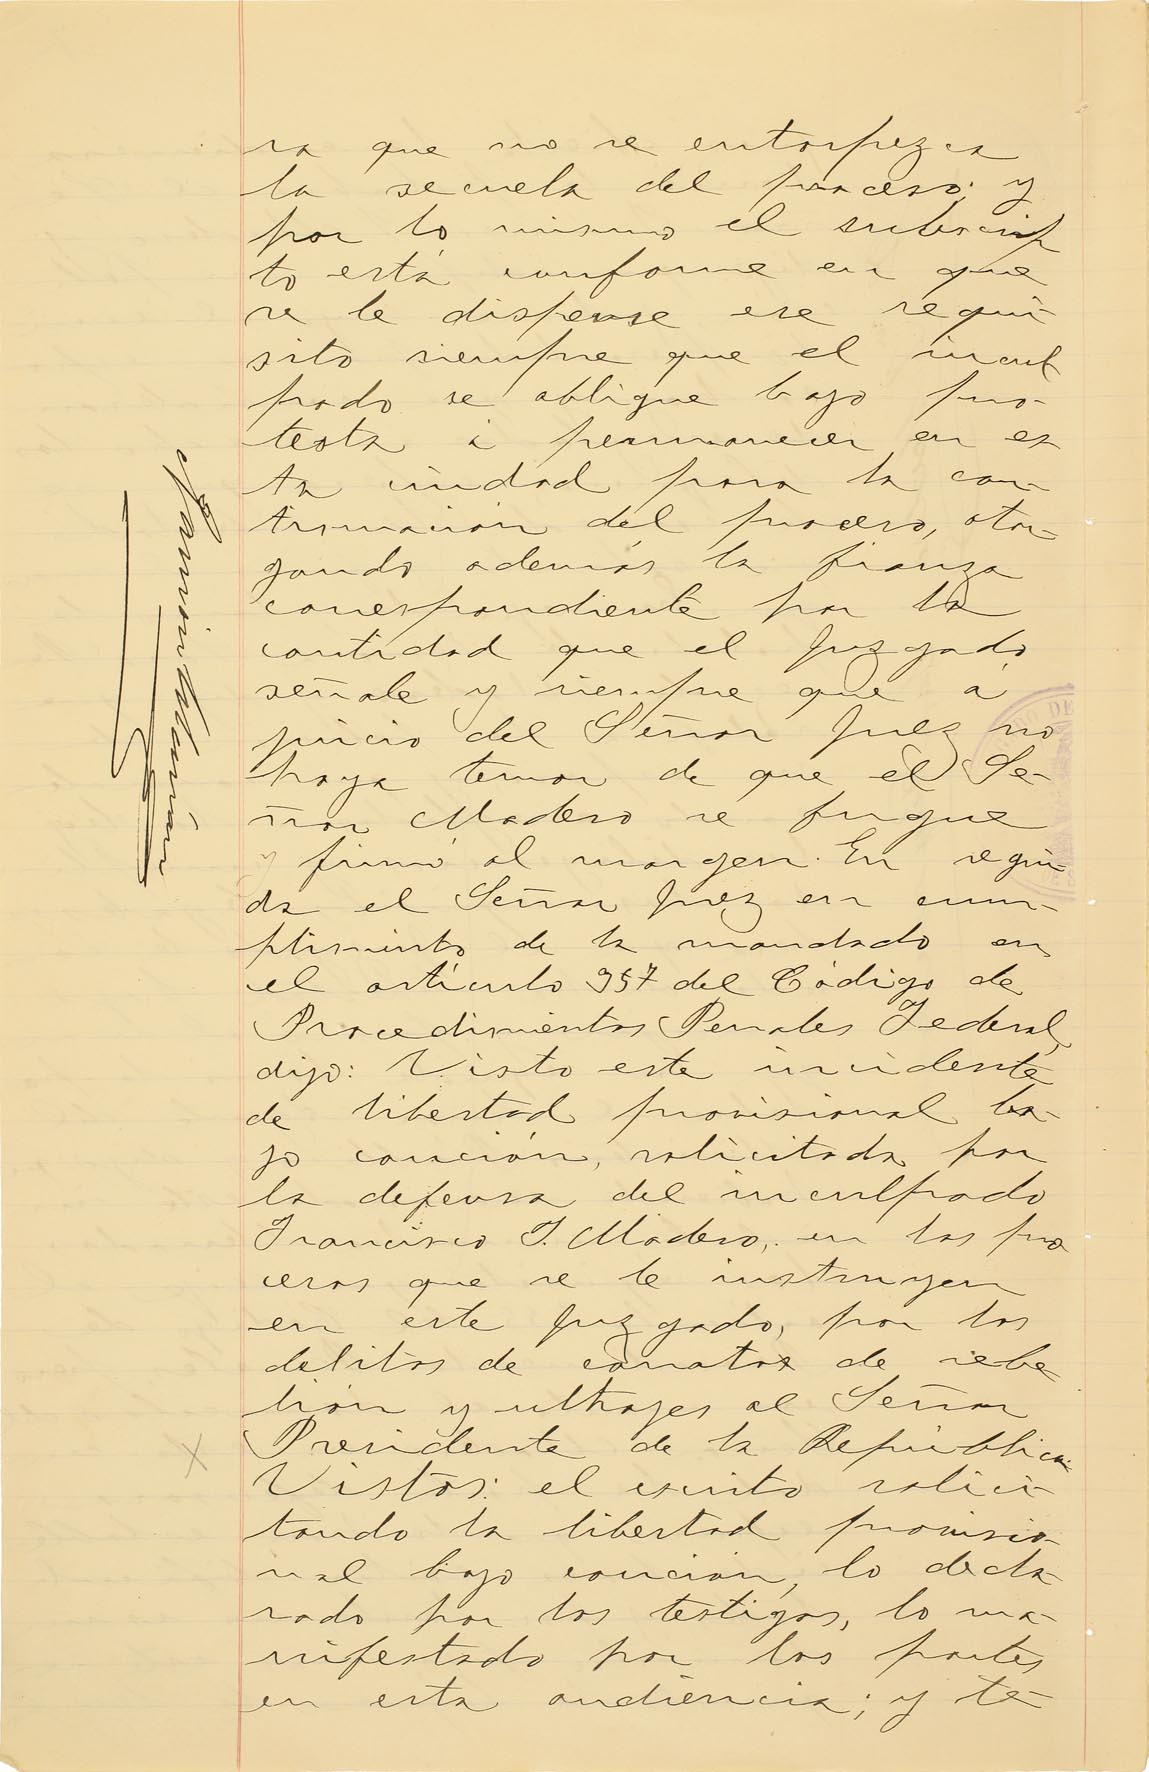 ra que no se entorpezca
la secuela del proceso; y
por lo mismo el subscrip
to está conforme en que
se le dispense ese requi-
sito siempre que el incul
pado se obligue bajo pro-
testa á permanecer en es
ta ciudad para la con-
tinuación del proceso, otor
gando además la fianza
correspondiente por la
cantidad que el Juzgado
señale y siempre que á
juicio del Señor Juez no
haya temor de que el Se-
ñor Madero se fugue
y firmó al margen. En segui-
da el Señor Juez en cum-
plimiento de la mandado en
el artículo 357 del Código de
Procedimientos Penales Federal,
dijo: Visto este incidente
de libertad provisional ba-
jo caución, solicitada por
la defensa del inculpado
Francisco I. Madero, en los pro
cesos que se le instruyen
en este Juzgado, por los
delitos de conatos de rebe-
lión y ultrajes al Señor
Presidente de la República.
Vistos: el escrito solici-
tando la libertad provisio-
nal bajo caución, lo decla-
rado por los testigos, lo ma-
nifestado por las partes
en esta audiencia; y te-